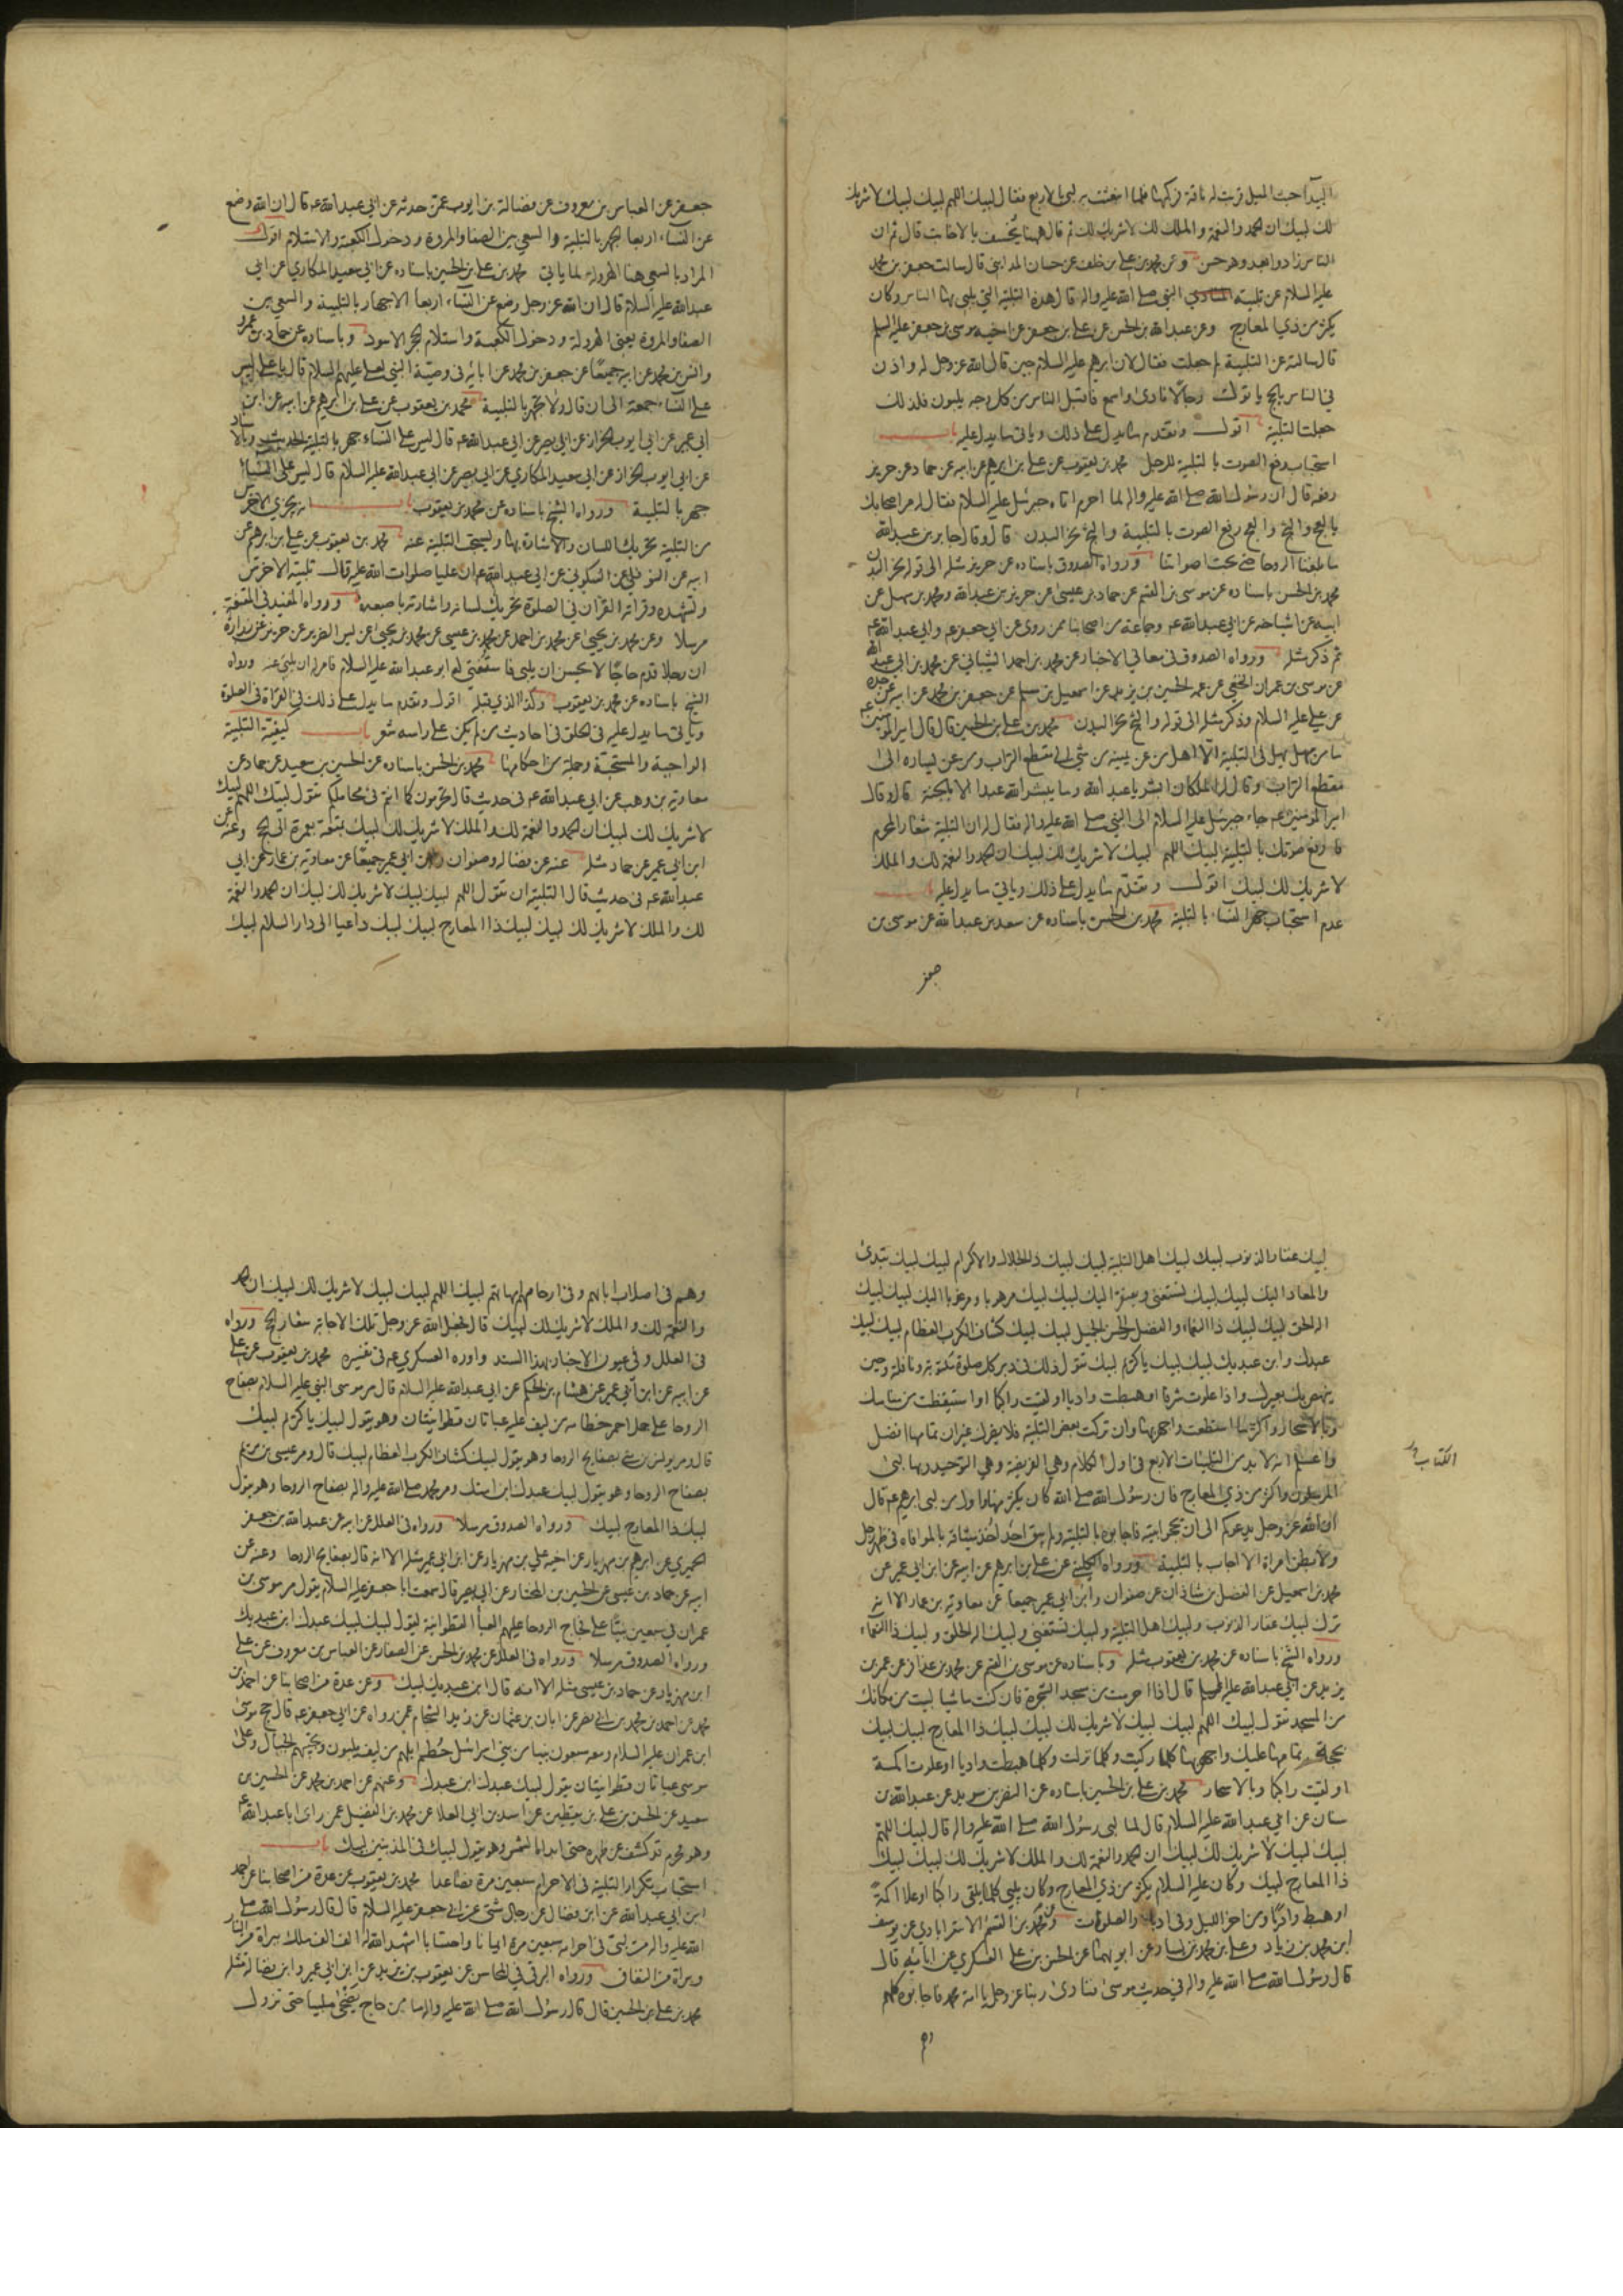 البيدآ حيث الميل قربت له ناقة فركبها فلما انبعثت به لبى بالاربع فقال لبيك اللهم لبيك لبيك لا شريك
لك لبيك ان الحمد والنعمة والملك لك لا شريك لك ثم قال ههنا يخسف بالاخابث قال ثم ان
الناس زادوا بعد وهو حسن وعن محمد بن علي بن خلف عن حسان المداينى قال سالت جعفر بن محمد
عليه السلام عن تلبية النبي صلى الله عليه واله قال هذه التلبية التي يلبى بها الناس وكان
يكثر من ذي المعارج وعن عبدالله بن الحسن عن علي بن جعفر عن اخيه موسى بن جعفر عليه السلم
قال سالته عن التلبية لم جعلت فقال لان ابرهيم عليه السلام حين قال الله عز وجل له واذن
في الناس بالحج ياتوك رجالا نادى واسمع فاقبل الناس من كل وجه يلبون فلذلك
جعلت التلبية اقول وتقدم ما يدل على ذلك وياتى ما يدل عليه باب
استحباب رفع الصوت بالتلبية للرجل محمد بن يعقوب عن علي بن ابرهيم عن ابيه عن حماد عن حريز
رفعه قال ان رسول الله صلى الله عليه واله لما احرم اتاه جبرئيل عليه السلام فقال له مر اصحابك
بالعج والثج والعج رفع الصوت بالتلبية والثج نحر البدن قال وقال جابر بن عبدالله
ما بلغنا الروحا حتى بحت اصواتنا ورواه الصدوق باسناده عن حريز مثله الى قوله نحر البدن
محمد بن الحسن باسناده عن موسى بن القسم عن حماد بن عيسى عن حريز بن عبدالله ومحمد بن سهل عن
ابيه عن اشياخه عن ابي عبدالله عم وجماعة من اصحابنا ممن روى عن ابي جعفر عم وابي عبدالله عم
ثم ذكر مثله ورواه الصدوق فى معاني الاخبار عن محمد بن احمد الشيبانى عن محمد بن ابي عبدالله
عن موسى بن عمران النخعي عن عمه الحسين بن يزيد عن اسمعيل بن مسلم عن جعفر بن محمد عن ابيه عن جده
عن علي عليه السلام وذكر مثله الى قوله والثج نحر البدن محمد بن علي بن الحسين قال قال امير المومنين عم
ما من مهل يهل فى التلبية الا اهل من عن يمينه من شي الى مقطع التراب ومن عن يساره الى
مقطع التراب وقال له الملكان ابشر يا عبدالله وما يبشر الله عبدا الا بالجنة قال وقال
امير المومنين عم جاء جبرئيل عليه السلام الى النبي صلى الله عليه واله فقال له ان التلبية شعار المحرم
فارفع صوتك بالتلبية لبيك اللهم لبيك لا شريك لك لبيك ان الحمد والنعمة لك والملك
لا شريك لك لبيك اقول وتقدم ما يدل على ذلك وياتي ما يدل عليه باب
عدم استحباب جهر النساء بالتلبية محمد بن الحسن باسناده عن سعد بن عبدالله عن موسى بن
جعفر
جعفر عن العباس بن معروف عن فضالة بن ايوب عمن حدثه عن ابي عبدالله عم قال ان الله وضع
عن النساء اربعا الجهر بالتلبية والسعي بين الصفا والمروة ودخول الكعبة والاستلام اقول
المراد بالسعي هنا الهرولة لما ياتي محمد بن علي بن الحسين باسناده عن ابي سعيد المكاري عن ابي
عبدالله عليه السلام قال ان الله عز وجل وضع عن النساء اربعا الاجهار بالتلبية والسعي بين
الصفا والمروة يعني الهرولة ودخول الكعبة واستلام الحجر الاسود وباسناده عن حماد بن عمرو
وانس بن محمد عن ابيه جميعا عن جعفر بن محمد عن ابائه فى وصية النبي لعلي عليهم السلام قال يا علي ليس
على النساء جمعة الى ان قال ولا تجهر بالتلبية محمد بن يعقوب عن علي بن ابرهيم عن ابيه عن ابن
ابي عمير عن ابي ايوب الخزاز عن ابي بصير عن ابي عبدالله عم قال ليس على النساء جهر بالتلبية الحديث وبالاسناد
عن ابي ايوب الخزاز عن ابي سعيد المكاري عن ابي بصير عن ابي عبدالله عليه السلام قال ليس على النساء
جهر بالتلبية ورواه الشيخ باسناده عن محمد بن يعقوب باب انه يجزي الاخرس
من التلبية تحريك اللسان والاشارة بها ويستحب التلبية عنه محمد بن يعقوب عن علي بن ابرهيم عن
ابيه عن النوفلي عن السكوني عن ابي عبدالله عم ان عليا صلوات الله عليه قال تلبية الاخرس
وتشهده وقراته القرآن في الصلوة تحريك لسانه واشارته باصبعه ورواه المفيد فى المقنعة
مرسلا وعن محمد بن يحيى عن محمد بن احمد عن محمد بن عيسى عن محمد بن يحيى عن يس الضرير عن حريز عن زرارة
ان رجلا قدم حاجا لا يحسن ان يلبى فاستفتى له ابو عبدالله عليه السلام فامر له ان يلبى عنه ورواه
الشيخ باسناده عن محمد بن يعقوب وكذا الذي قبله اقول وتقدم ما يدل على ذلك في القراة فى الصلوة
وياتى ما يدل عليه فى الحلق فى احاديث من لم يكن على راسه شعر باب كيفية التلبية
الواجبة والمستحبة وجملة من احكامها محمد بن الحسن باسناده عن الحسين بن سعيد عن حماد عن
معاوية بن وهب عن ابي عبدالله عم فى حديث قال تحرمون كما انتم فى محاملكم تقول لبيك اللهم لبيك
لا شريك لك لبيك ان الحمد والنعمة لك والملك لا شريك لك لبيك بمتعة بعمرة الى الحج وعنه عن
ابن ابي عمير عن حماد مثله عنه عن فضالة وصفوان وابن ابي عمير جميعا عن معاوية بن عمار عن ابي
عبدالله عم فى حديث قال التلبية ان تقول اللهم لبيك لبيك لا شريك لك لبيك ان الحمد والنعمة
لك والملك لا شريك لك لبيك لبيك ذا المعارج لبيك لبيك داعيا الى دار السلام لبيك
لبيك غفار الذنوب لبيك لبيك اهل التلبية لبيك لبيك ذا الجلال والاكرام لبيك لبيك تبدئ
والمعاد اليك لبيك لبيك تستغنى ويفتقر اليك لبيك لبيك مرهوبا ومرغوبا اليك لبيك لبيك
اله الحق لبيك لبيك ذا النعماء والفضل الحسن الجميل لبيك لبيك كشاف الكرب العظام لبيك لبيك
عبدك وابن عبديك لبيك لبيك يا كريم لبيك تقول ذلك فى دبر كل صلوة مكتوبة ونافلة وحين
ينهض بك بعيرك واذا علوت شرفا او هبطت واديا او لقيت راكبا او استيقظت من منامك
وبالاسحار واكثر ما استطعت واجهر بها وان تركت بعض التلبية فلا يضرك غير ان تمامها افضل
واعلم انه لابد من التلبيات الاربع فى اول الكلام وهي الفريضة وهي التوحيد وبها لبى
الكتاب
المرسلون واكثر من ذي المعارج فان رسول الله صلى الله كان يكثر منها واول من لبى ابرهيم عم قال
ان الله عز وجل يدعوكم الى ان تحجوا بيته فاجابوه بالتلبية ولم يبق احد اخذ ميثاقه بالموافاه فى ظهر رجل
ولا بطن امراة الا اجاب بالتلبية ورواه الكليني عن علي بن ابرهيم عن ابيه عن ابن ابي عمير عن
محمد بن اسمعيل عن الفضل بن شاذان عن صفوان وابن ابي عمير جميعا عن معاوية بن عمار الا انه
ترك لبيك غفار الذنوب ولبيك اهل التلبية ولبيك تستغني ولبيك اله الحق ولبيك ذا النعماء
ورواه الشيخ باسناده عن محمد بن يعقوب مثله وباسناده عن موسى بن القسم عن محمد بن عذافر عن عمر بن
يزيد عن ابي عبدالله عليه السلم قال اذا احرمت من مسجد الشجرة فان كنت ماشيا لبيت من مكانك
من المسجد تقول لبيك اللهم لبيك لبيك لا شريك لك لبيك لبيك ذا المعارج لبيك لبيك
بحجة تمامها عليك واجهر بها كلما ركبت وكلما نزلت وكلما هبطت واديا او علوت اكمة
او لقيت راكبا وبالاسحار محمد بن علي بن الحسين باسناده عن النضر بن سويد عن عبدالله بن
سنان عن ابي عبدالله عليه السلام قال لما لبى رسول الله صلى الله عليه واله قال لبيك اللهم
لبيك لبيك لا شريك لك لبيك ان الحمد والنعمة لك والملك لا شريك لك لبيك لبيك
ذا المعارج لبيك وكان عليه السلام يكثر من ذي المعارج وكان يلبي كلما يلقى راكبا او علا اكمة
او هبط واديا ومن اخر الليل وفى ادبار الصلوات وعن محمد بن القسم الاسترابادي عن يوسف
ابن محمد بن زياد وعلي بن محمد بن يسار عن ابويهما عن الحسن بن علي العسكري عن ابائه قال
قال رسول الله صلى الله عليه واله في حديث موسى فنادى ربنا عز وجل يا امة محمد فاجابوه كلهم
وهم
وهم فى اصلاب ابائهم وفى ارحام امهاتهم لبيك اللهم لبيك لبيك لا شريك لك لبيك ان الحمد
والنعمة لك والملك لا شريك لك لبيك قال فجعل الله عز وجل تلك الاجابة شعار الحج ورواه
فى العلل وفي عيون الاخبار بهذا السند واورده العسكري عم فى تفسيره محمد بن يعقوب عن علي
عن ابيه عن ابن ابي عمير عن هشام بن الحكم عن ابي عبدالله عليه السلام قال مر موسى النبي عليه السلام بصفاح
الروحا على جمل احمر خطامه من ليف عليه عباتان قطوانيتان وهو يقول لبيك يا كريم لبيك
قال ومر يونس بن متى بصفايح الروحا وهو يقول لبيك كشاف الكرب العظام لبيك قال ومر عيسى بن مريم
بصفاح الروحا وهو يقول لبيك عبدك ابن امتك ومر محمد صلى الله عليه واله بصفاح الروحا وهو يقول
لبيك ذا المعارج لبيك ورواه الصدوق مرسلا ورواه فى العلل عن ابيه عن عبدالله بن جعفر
الحميري عن ابرهيم بن مهزيار عن اخيه علي بن مهزيار عن ابن ابي عمير مثله الا انه قال بصفايح الروحا وعنه عن
ابيه عن حماد بن عيسى عن الحسين بن المختار عن ابي بصير قال سمعت ابا جعفر عليه السلام يقول مر موسى بن
عمران في سبعين نبيا على فجاج الروحا عليهم العبا القطوانية يقول لبيك لبيك عبدك ابن عبديك
ورواه الصدوق مرسلا ورواه فى العلل عن محمد بن الحسن عن الصفار عن العباس بن معروف عن علي
ابن مهزيار عن حماد بن عيسى مثله الا انه قال ابن عبديك لبيك وعن عدة من اصحابنا عن احمد بن
محمد عن احمد بن محمد بن ابي نصر عن ابان بن عثمان عن زيد الشحام عمن رواه عن ابي جعفر عم قال حج موسى
ابن عمران عليه السلام ومعه سبعون نبيا من بني اسرائيل خطم ابلهم من ليف يلبون وتجيبهم الجبال وعلى
موسى عباتان قطوانيتان يقول لبيك عبدك ابن عبدك وعنهم عن احمد بن محمد عن الحسين بن
سعيد عن الحسن بن علي بن يقطين عن اسد بن ابي العلا عن محمد بن الفضيل عمن راى ابا عبدالله عم
وهو محرم قد كشف عن ظهره حتى ابداه للشمس وهو يقول لبيك فى المذنبين لبيك باب
استحباب تكرار التلبية فى الاحرام سبعين مرة فصاعدا محمد بن يعقوب عن عدة من اصحابنا عن احمد
ابن ابي عبدالله عن ابن فضال عن رجال شتى عن ابي جعفر عليه السلام قال قال رسول الله صلى
الله عليه واله من لبى فى احرامه سبعين مرة ايمانا واحتسابا اشهد الله له الف الف ملك ببراة من النار
وبراة من النفاق ورواه البرقي في المحاسن عن يعقوب بن يزيد عن ابن ابي عمير وابن فضال مثله
محمد بن علي بن الحسين قال قال رسول الله صلى الله عليه واله ما من حاج يضحى ملبيا حتى تزول